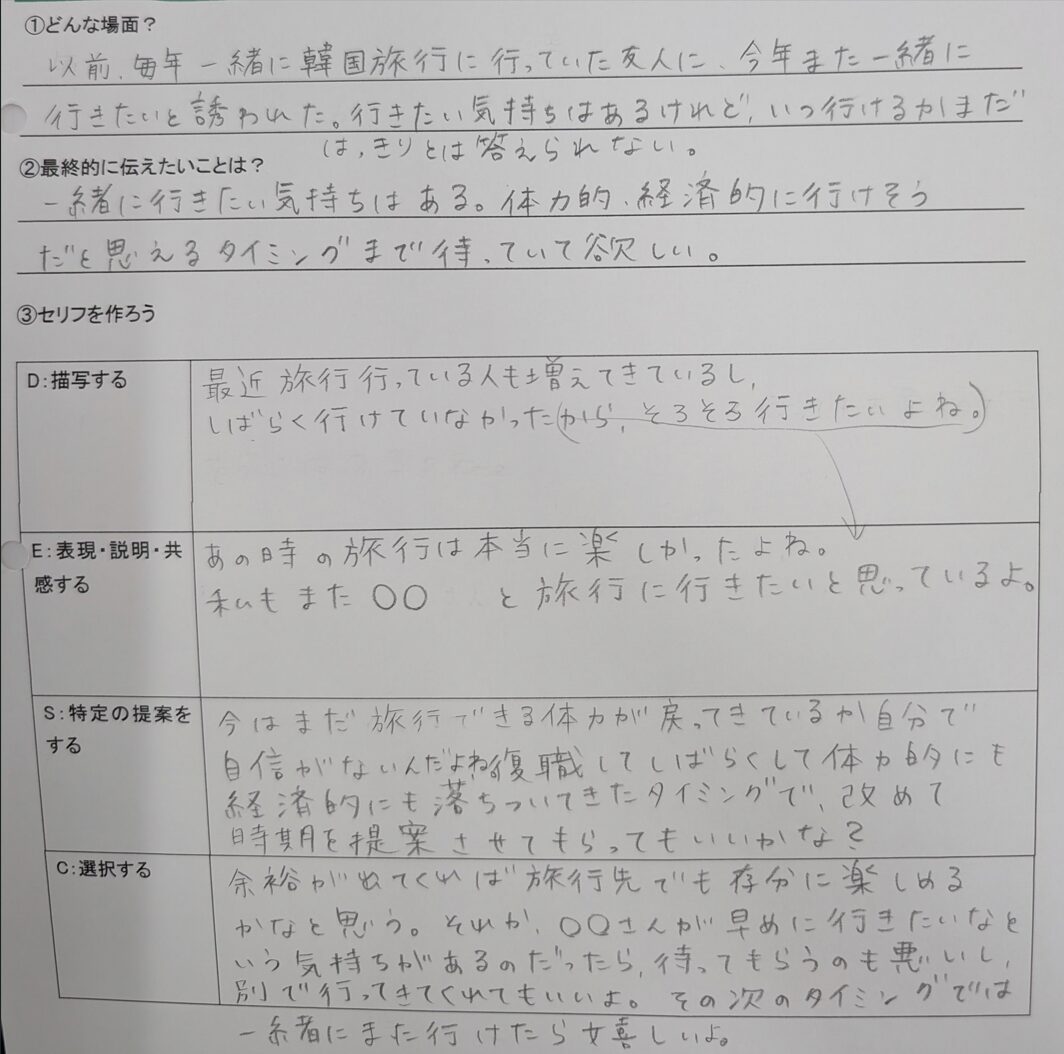 ①どんな場面？
以前、毎年一緒に韓国旅行に行っていた友人に、今年また一緒に
行きたいと誘われた。行きたい気持ちはあるけれど、いつ行けるかまだ
はっきりとは答えられない。
②最終的に伝えたいことは？
一緒に行きたい気持ちはある。体力的、経済的に行けそう
だと思えるタイミングまで待っていて欲しい。
③セリフを作ろう
D：描写する
最近旅行行っている人も増えてきているし、
しばらく行けていなかった(から、そろそろ行きたいよね。)
E：表現・説明・共
感する
あの時の旅行は本当に楽しかったよね。
私もまた○○と旅行に行きたいと思っているよ。
S：特定の提案を
する
今はまだ旅行できる体力が戻ってきているか自分で
自信がないんだよね。復職してしばらくして体力的にも
経済的にも落ちついてきたタイミングで、改めて
時期を提案させてもらってもいいかな？
C：選択する
余裕がでてくれば旅行先でも存分に楽しめる
かなと思う。それか、○○さんが早めに行きたいなと
いう気持ちがあるのだったら、待ってもらうのも悪いし、
別で行ってきてくれてもいいよ。その次のタイミングでは
一緒にまた行けたら嬉しいよ。